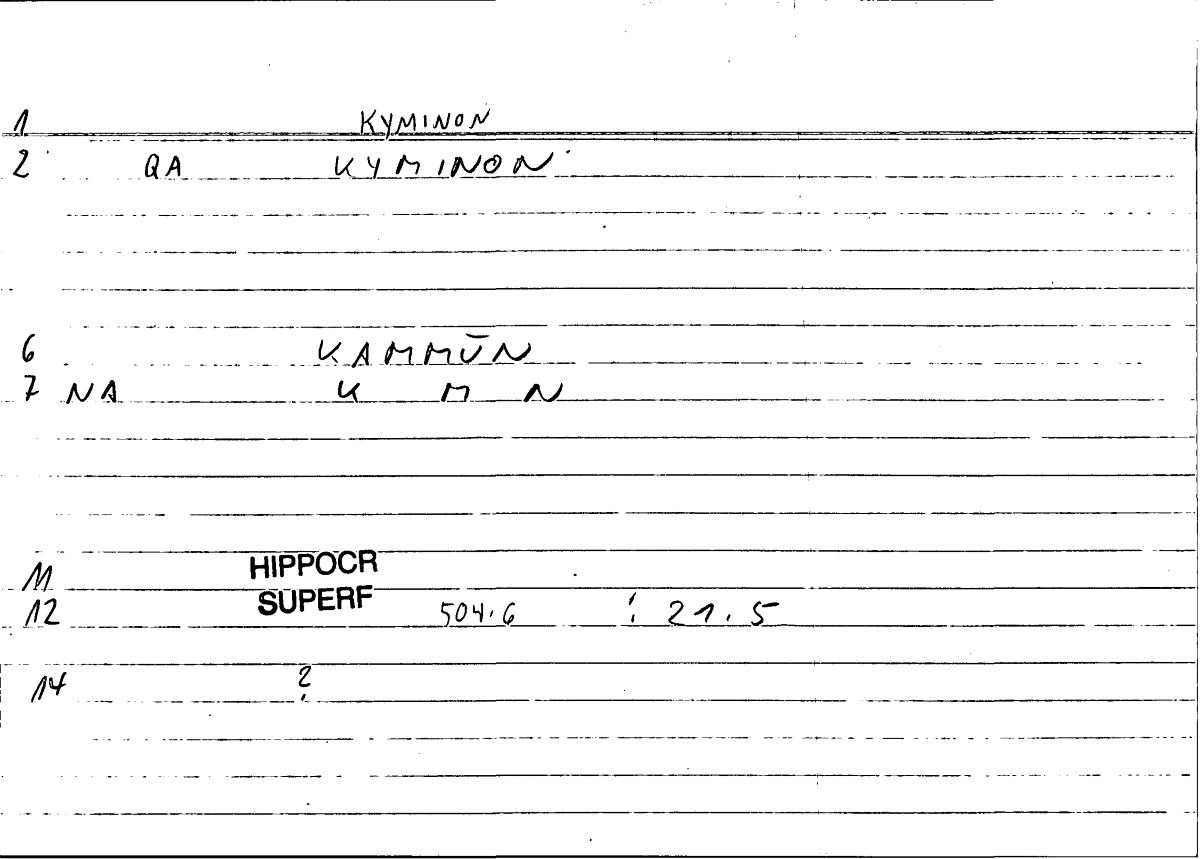 1 KYMINON
2 QA KYMINON
6 KAMMŪN
7 NA K M N
11 HIPPOCR
12 SUPERF 504.6 : 21.5
14 ?